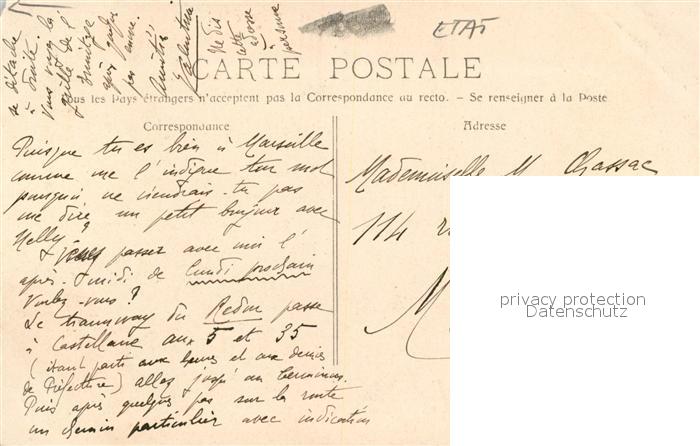 ETAT
CARTE POSTALE
Tous les Pays étrangers n'acceptent pas la Correspondance au recto. - Se renseigner à la Poste
Correspondance
Adresse
Puisque tu es bien à Marseille
comme me l'indique ton mot
pourquoi ne viendrais-tu pas
me dire un petit bonjour avec
Nelly?
Venez passer avec moi l'
après-midi de lundi prochain
Voulez-vous?
Le tramway du Redon passe
à Castellane aux 5 et 35
(étant parti aux heures et aux demies
de Préfecture) allez jusqu'au terminus.
Puis après quelques pas sur la route
un chemin particulier avec indication
se détache
à droite.
Vous verrez la
grille de l'
par
Amitiés
Valentine
Ne dis
cette
adresse
à
personne
Mademoiselle M. Chassac
114
M
privacy protection
Datenschutz